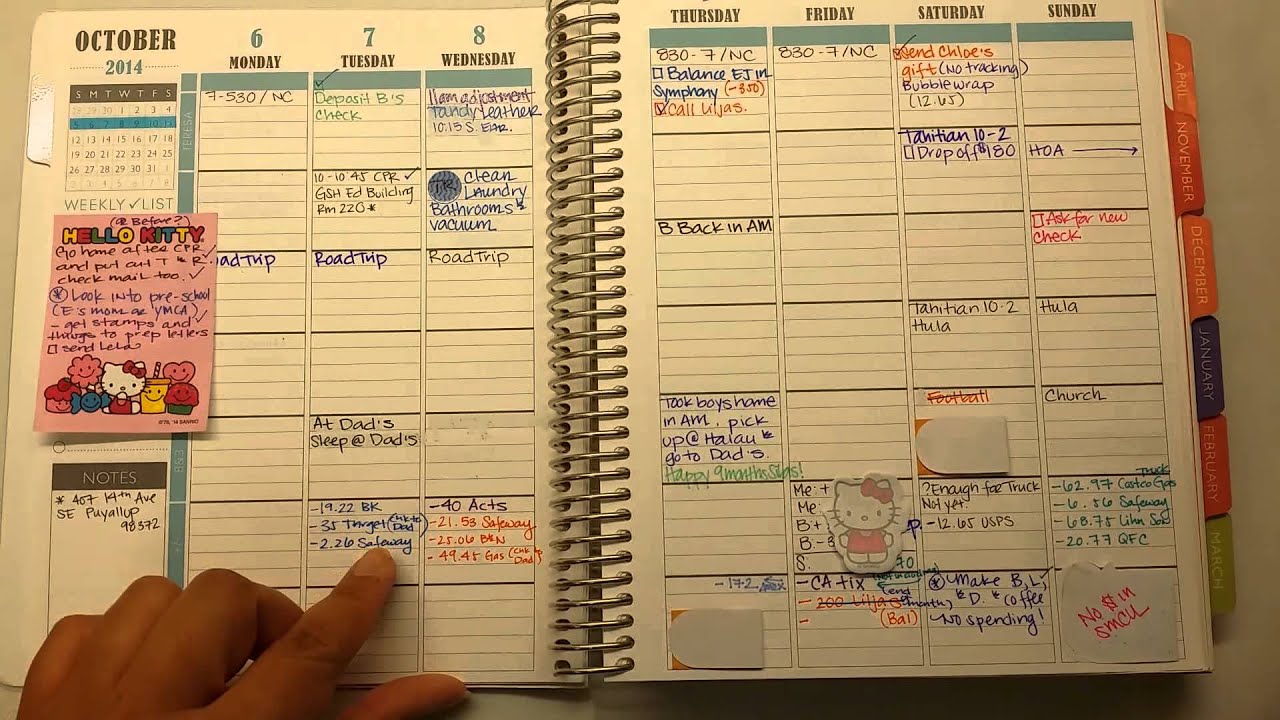 OCTOBER
2014
S M T W T F S
28 29 30 1 2 3 4
5 6 7 8 9 10 11
12 13 14 15 16 17 18
19 20 21 22 23 24 25
26 27 28 29 30 31 1
2 3 4 5 6 7 8
WEEKLY ✓LIST
(or Before?)
HELLO KITTY
Go home after CPR ✓
and put out T + R ✓
check mail too. ✓
* Look into pre-school
(E's mom or YMCA) ✓
- get stamps and
things to prep letters
□ send Lela
©'76, '14 SANRIO
NOTES
* 407 14th Ave
SE Puyallup
98372
TERESA
6
MONDAY
7-530/NC
RoadTrip
7
TUESDAY
✓
Deposit B's
check
10-10:45 CPR ✓
GSH Ed Building
Rm 220 *
RoadTrip
At Dad's
Sleep @ Dad's
-19.22 BK
-35 Target (Chk to Dad)
-2.26 Safeway
8
WEDNESDAY
11am adjustment
Tandy Leather
10:15 S. Ear.
TR Clean
Laundry
Bathrooms +
vacuum
RoadTrip
-40 Acts
-21.53 Safeway
-25.06 B&N
-49.45 Gas (Chk to Dad)
THURSDAY
830-7/NC
□ Balance EJ in
Symphony (-350)
☑ Call Liljas.
B Back in AM
Took boys home
in AM, pick
up @ Halau +
go to Dad's.
Happy 9 months Silas!
-172
FRIDAY
830-7/NC
Me: +
Me:
B: +
B: -3
S.
70
- CA tix
- 200 Liljas
(end month)
- (Bal)
SATURDAY
Send Chloe's
gift (No tracking)
Bubblewrap
(12.65)
Tahitian 10-2
□ Drop off $180
Tahitian 10-2
Hula
Football
? Enough for Truck
Not yet.
-12.65 USPS
* Make B, L,
+ D. + coffee
No spending!
SUNDAY
HOA →
□ Ask for new
check
Hula
Church
Truck
-62.97 Costco Gas
-6.56 Safeway
-68.75
-20.77 QFC
No $ in
SMCU
APRIL
NOVEMBER
DECEMBER
JANUARY
FEBRUARY
MARCH